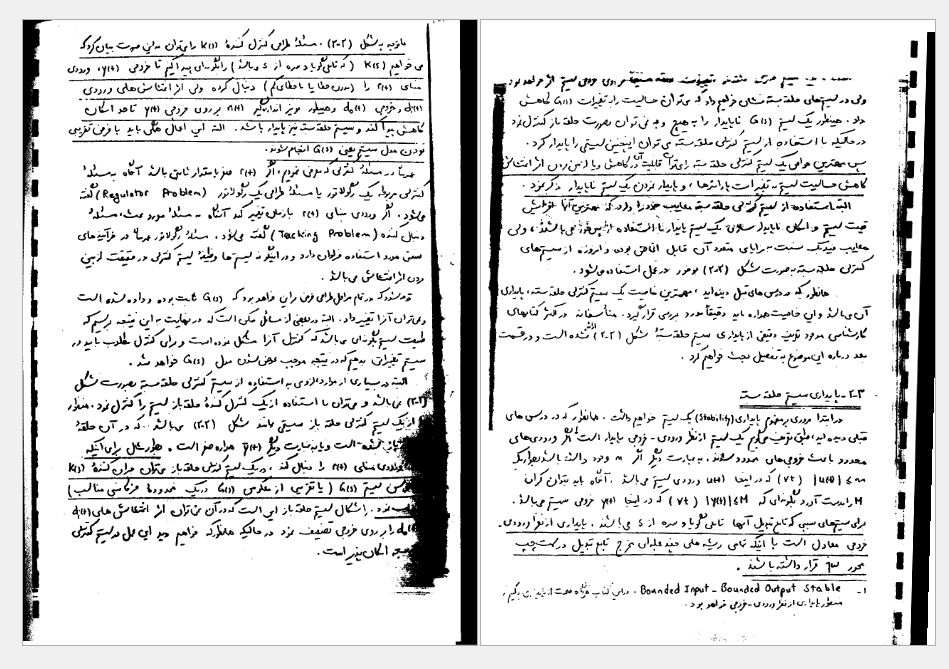 با توجه به شکل (۲-۲)، مسئله طراحی کنترل کننده K(s) را می‌توان به این صورت بیان کرد که
می خواهیم K(s) (که تابعی گویا و سره از s می‌باشد) را بگونه‌ای پیدا کنیم تا خروجی y(t)، ورودی
مبنای r(t) را (بدون خطا یا با خطای کم) دنبال کرده ولی اثر اغتشاش‌های ورودی
d₁(t) و خروجی d₀(t) و همینطور نویز اندازه‌گیر n(t) بر روی خروجی y(t) تا حد امکان
کاهش پیدا کند و سیستم حلقه بسته نیز پایدار باشد. البته این اعمال همگی باید با فرض تقریبی
بودن مدل سیستم یعنی G(s) انجام شوند.
r(t) صفر یا مقدار ثابتی باشد آنگاه به مسئله
کنترلی مربوطه یک رگولاتور یا مسئله طراحی یک رگولاتور (Regulator Problem) گفته
می‌شود. اگر ورودی مبنای r(t) با زمان تغییر کند آنگاه به مسئله مورد بحث، مسئله
دنبال کننده (Tracking Problem) گفته می‌شود. مسئله رگولاتور عموماً در فرآیندهای
صنعتی مورد استفاده فراوان دارد و در اینگونه سیستم‌ها وظیفه سیستم کنترلی در حقیقت از بین
بردن اثر اغتشاش می باشد.
توجه شود که در تمام مراحل طراحی فرض بر این خواهد بود که G(s) ثابت بوده و داده شده است
و نمی‌توان آنرا تغییر داد. البته در بعضی از مسائل ممکن است که در نهایت به این نتیجه برسیم که
طبیعت سیستم بگونه‌ای می‌باشد که کنترل آنرا مشکل نموده است و برای کنترل مطلوب باید در
سیستم تغییراتی بدهیم که در نتیجه موجب عوض شدن مدل G(s) خواهد شد.
البته در بسیاری از موارد لزومی به استفاده از سیستم کنترلی حلقه بسته بصورت شکل
(۲-۲) نمی باشد و می‌توان با استفاده از یک کنترل کننده حلقه باز سیستم را کنترل نمود. منظور
از یک سیستم کنترلی حلقه باز سیستمی مانند شکل (۲-۲) می‌باشد که در آن حلقه
باز شده است و یا به عبارت دیگر همواره صفر است. بطور مثال برای آنکه
ورودی مبنای r(t) را دنبال کند، در یک سیستم کنترلی حلقه باز می‌توان میزان کننده K(s)
سیستم G(s) (یا تقریبی از معکوس G(s) در یک محدوده فرکانسی مناسب)
نمود. اما اشکال سیستم حلقه باز این است که در آن نمی‌توان اثر اغتشاش‌های d₁(t)
d₀(t) را بر روی خروجی تضعیف نمود در حالیکه همانطور که خواهیم دید این عمل در سیستم کنترلی
امکان پذیر است.
سیستم اثر خواهد بود.
ولی در سیستم‌های حلقه بسته نشان خواهیم داد که می‌توان حساسیت را به تغییرات G(s) کاهش
داد. همینطور یک سیستم G(s) ناپایدار را به هیچ وجه نمی توان بصورت حلقه باز کنترل نمود
در حالیکه با استفاده از سیستم کنترلی حلقه بسته می توان اینچنین سیستمی را پایدار کرد.
پس مهمترین خواص یک سیستم کنترلی حلقه بسته را می‌توان قابلیت آن در کاهش و یا از بین بردن اثر اغتشاش،
کاهش حساسیت سیستم به تغییرات پارامترها، و پایدار نمودن یک سیستم ناپایدار ذکر نمود.
البته استفاده از سیستم کنترلی حلقه بسته معایب خود را دارد که مهمترین آنها افزایش
قیمت سیستم و امکان ناپایدار سازی یک سیستم پایدار با استفاده از پس‌خور می باشد، ولی
معایب فیدبک نسبت به مزایای متعدد آن قابل اغماض بوده و امروزه از سیستم‌های
کنترلی حلقه بسته بصورت شکل (۲-۲) بوفور در عمل استفاده می‌شود.
همانطور که در درس‌های قبل دیده‌اید، مهمترین خاصیت یک سیستم کنترلی حلقه بسته، پایداری
آن می‌باشد و این خاصیت همواره باید دقیقاً مورد بررسی قرار گیرد. متأسفانه در اکثر کتابهای
کارشناسی موجود تعریف دقیقی از پایداری سیستم حلقه بسته شکل (۲-۲) نشده است و در قسمت
بعد درباره این موضوع به تفصیل بحث خواهیم کرد.
۲-۳- پایداری سیستم حلقه بسته
در ابتدا مروری بر مفهوم پایداری (Stability) یک سیستم خواهیم داشت. همانطور که در درس های
قبلی دیده اید اصلی توجه می‌کنیم یک سیستم از نظر ورودی - خروجی پایدار است¹ اگر ورودی‌های
محدود باعث خروجی‌های محدود شوند. به عبارت دیگر اگر m وجود داشته باشد بطوریکه
|u(t)| ≤ m (∀t) که در اینجا u(t) ورودی سیستم می باشد. آنگاه باید بتوان کران
M را بدست آورد بگونه‌ای که |y(t)| ≤ M (∀t) که در اینجا y(t) خروجی سیستم می‌باشد.
برای سیستم‌هایی که تابع تبدیل آنها تابعی گویا و سره از s می باشد، پایداری از نظر ورودی-
خروجی معادل است با اینکه تمامی ریشه های چند جمله‌ای مخرج تابع تبدیل در سمت چپ
محور jω قرار داشته باشند.
۱- Bounded Input - Bounded Output Stable. در این کتاب هرگاه صحبت از پایداری می‌کنیم،
منظور پایداری از نظر ورودی-خروجی خواهد بود.